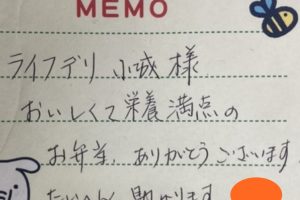 MEMO
ライフデリ 小城 様
おいしくて栄養満点の
お弁当、ありがとうございます
たいへん 助かります